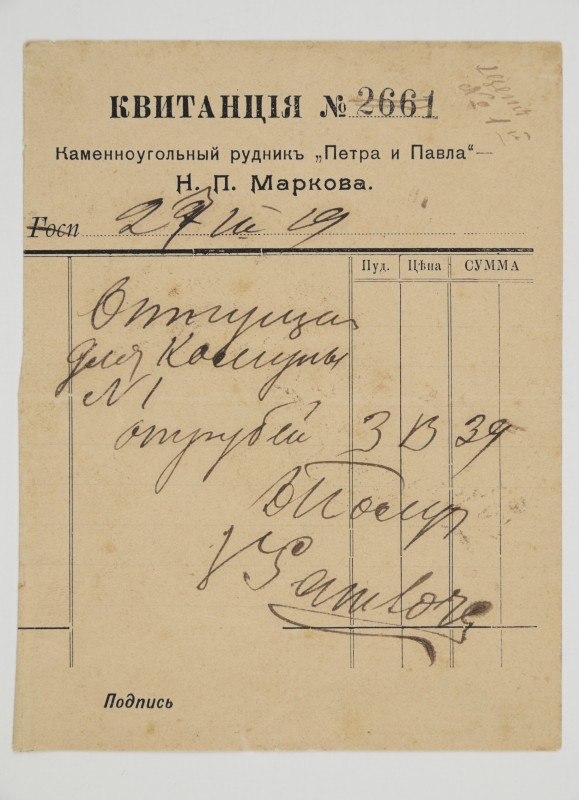 КВИТАНЦІЯ № 2661
Каменноугольный рудникъ „Петра и Павла“—
Н. П. Маркова.
Госп 27 III 19
Пуд. Цѣна СУММА
для Комуны
N 1
отрубей 3 13 39
Подпись